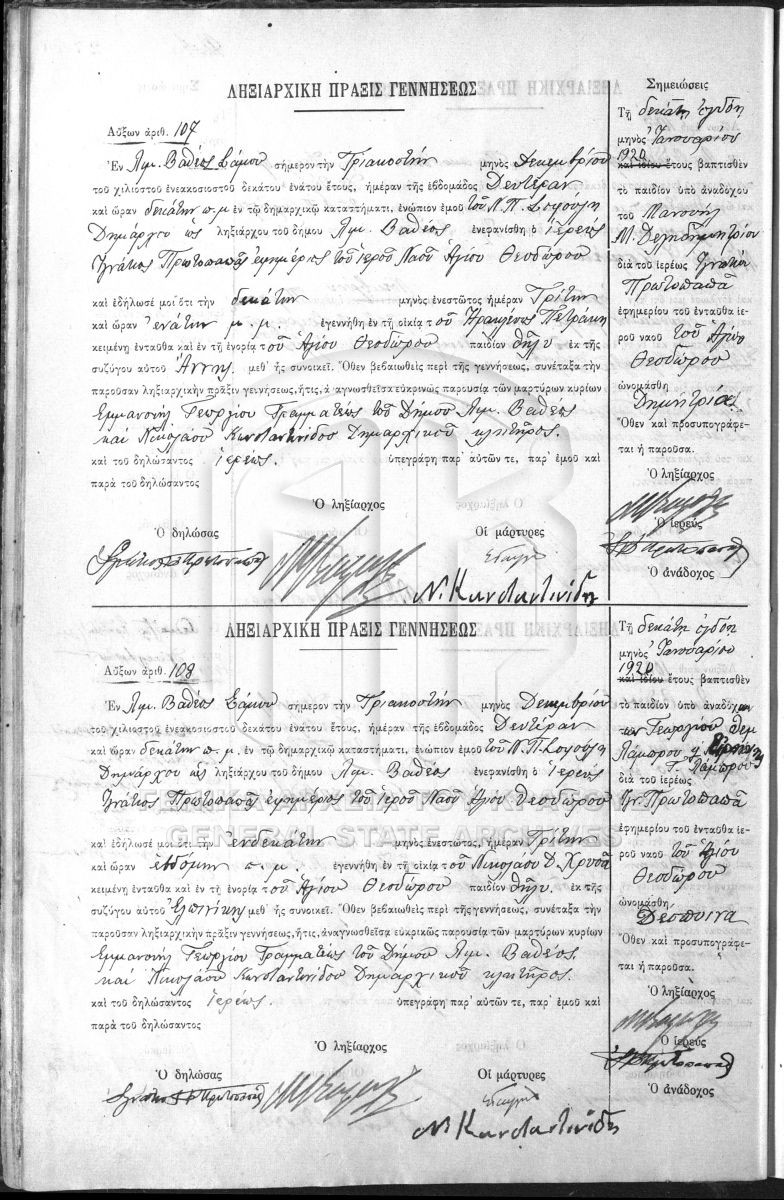 ΛΗΞΙΑΡΧΙΚΗ ΠΡΑΞΙΣ ΓΕΝΝΗΣΕΩΣ
Αὔξων ἀριθ. 107
Ἐν Λιμ. Βαθέος Σάμου σήμερον τὴν Τριακοστὴν μηνὸς Δεκεμβρίου
τοῦ χιλιοστοῦ ἐνεακοσιοστοῦ δεκάτου ἐνάτου ἔτους, ἡμέραν τῆς ἑβδομάδος Δευτέραν
καὶ ὥραν δεκάτην π.μ. ἐν τῷ δημαρχικῷ καταστήματι, ἐνώπιον ἐμοῦ τοῦ Ν. Π. Σοφούλη
Δημάρχου ὡς ληξιάρχου τοῦ δήμου Λιμ. Βαθέος ἐνεφανίσθη ὁ ἱερεὺς
Ἰγνάτιος Πρωτοπαπᾶς ἐφημέριος τοῦ ἱεροῦ Ναοῦ Ἁγίου Θεοδώρου
καὶ ἐδήλωσέ μοι ὅτι τὴν δεκάτην μηνὸς ἐνεστῶτος ἡμέραν Τρίτην
καὶ ὥραν ἐνάτην μ.μ. ἐγεννήθη ἐν τῇ οἰκίᾳ τοῦ Ἡρακλέους Πετράκη
κειμένῃ ἐνταῦθα καὶ ἐν τῇ ἐνορίᾳ τοῦ Ἁγίου Θεοδώρου παιδίον θῆλυ ἐκ τῆς
συζύγου αὐτοῦ Ἄννης μεθ' ἧς συνοικεῖ. Ὅθεν βεβαιωθεὶς περὶ τῆς γεννήσεως, συνέταξα τὴν
παροῦσαν ληξιαρχικὴν πρᾶξιν γεννήσεως, ἥτις, ἀναγνωσθεῖσα εὐκρινῶς παρουσίᾳ τῶν μαρτύρων κυρίων
Εμμανουὴλ Γεωργίου Γραμματέως τοῦ Δήμου Λιμ. Βαθέος
καὶ Νικολάου Κωνσταντινίδου Δημαρχικοῦ κλητῆρος.
καὶ τοῦ δηλώσαντος ἱερέως. ὑπεγράφη παρ' αὐτῶν τε, παρ' ἐμοῦ καὶ
παρὰ τοῦ δηλώσαντος
Ὁ ληξίαρχος
Ὁ δηλώσας
Οἱ μάρτυρες
Ν. Κωνσταντινίδης
Σημειώσεις
Τῇ δεκάτῃ ὀγδόῃ
μηνὸς Ἰανουαρίου
1920
καὶ ἰδίου ἔτους βαπτισθὲν
τὸ παιδίον ὑπὸ ἀναδόχου
τοῦ Μανουὴλ
Μ. Δεληδημητρίου
διὰ τοῦ ἱερέως Ἰγνατίου
Πρωτοπαπᾶ
ἐφημερίου τοῦ ἐνταῦθα ἱε-
ροῦ ναοῦ τοῦ Ἁγίου
Θεοδώρου
ὠνομάσθη
Δημητρία
Ὅθεν καὶ προσυπογράφε-
ται ἡ παροῦσα.
Ὁ ληξίαρχος
Ὁ ἱερεύς
Ὁ ἀνάδοχος
ΛΗΞΙΑΡΧΙΚΗ ΠΡΑΞΙΣ ΓΕΝΝΗΣΕΩΣ
Αὔξων ἀριθ. 108
Ἐν Λιμ. Βαθέος Σάμου σήμερον τὴν Τριακοστὴν μηνὸς Δεκεμβρίου
τοῦ χιλιοστοῦ ἐνεακοσιοστοῦ δεκάτου ἐνάτου ἔτους, ἡμέραν τῆς ἑβδομάδος Δευτέραν
καὶ ὥραν δεκάτην π.μ. ἐν τῷ δημαρχικῷ καταστήματι, ἐνώπιον ἐμοῦ τοῦ Ν. Π. Σοφούλη
Δημάρχου ὡς ληξιάρχου τοῦ δήμου Λιμ. Βαθέος ἐνεφανίσθη ὁ ἱερεὺς
Ἰγνάτιος Πρωτοπαπᾶς ἐφημέριος τοῦ ἱεροῦ Ναοῦ Ἁγίου Θεοδώρου
καὶ ἐδήλωσέ μοι ὅτι τὴν ἑνδεκάτην μηνὸς ἐνεστῶτος, ἡμέραν Τρίτην
καὶ ὥραν ἑβδόμην π.μ. ἐγεννήθη ἐν τῇ οἰκίᾳ τοῦ Νικολάου Δ. Χρυσᾶ
κειμένῃ ἐνταῦθα καὶ ἐν τῇ ἐνορίᾳ τοῦ Ἁγίου Θεοδώρου παιδίον θῆλυ. ἐκ τῆς
συζύγου αὐτοῦ Ἐλπινίκης μεθ' ἧς συνοικεῖ. Ὅθεν βεβαιωθεὶς περὶ τῆς γεννήσεως, συνέταξα τὴν
παροῦσαν ληξιαρχικὴν πρᾶξιν γεννήσεως, ἥτις, ἀναγνωσθεῖσα εὐκρινῶς παρουσίᾳ τῶν μαρτύρων κυρίων
Εμμανουὴλ Γεωργίου Γραμματέως τοῦ Δήμου Λιμ. Βαθέος
καὶ Νικολάου Κωνσταντινίδου Δημαρχικοῦ κλητῆρος.
καὶ τοῦ δηλώσαντος ἱερέως. ὑπεγράφη παρ' αὐτῶν τε, παρ' ἐμοῦ καὶ
παρὰ τοῦ δηλώσαντος
Ὁ ληξίαρχος
Ὁ δηλώσας
Οἱ μάρτυρες
Ν. Κωνσταντινίδης
Τῇ δεκάτῃ ὀγδόῃ
μηνὸς Ἰανουαρίου
1920
καὶ ἰδίου ἔτους βαπτισθὲν
τὸ παιδίον ὑπὸ ἀναδόχων
τῶν Γεωργίου
Λάμπρου
Γ. Λάμπρου
διὰ τοῦ ἱερέως
Ἰγν. Πρωτοπαπᾶ
ἐφημερίου τοῦ ἐνταῦθα ἱε-
ροῦ ναοῦ τοῦ Ἁγίου
Θεοδώρου
ὠνομάσθη
Δέσποινα
Ὅθεν καὶ προσυπογράφε-
ται ἡ παροῦσα.
Ὁ ληξίαρχος
Ὁ ἱερεύς
Ὁ ἀνάδοχος
GENERAL STATE ARCHIVES